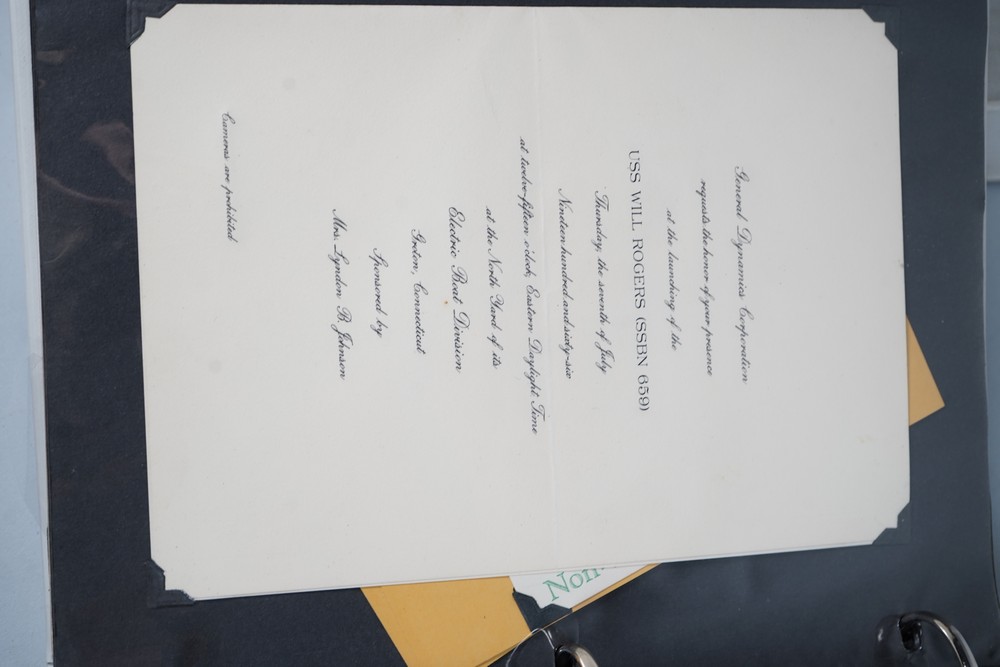 General Dynamics Corporation
requests the honor of your presence
at the launching of the
USS WILL ROGERS (SSBN 659)
Thursday, the seventh of July
Nineteen hundred and sixty-six
at twelve-fifteen o'clock, Eastern Daylight Time
at the North Yard of its
Electric Boat Division
Groton, Connecticut
Sponsored by
Mrs. Lyndon B. Johnson
Cameras are prohibited